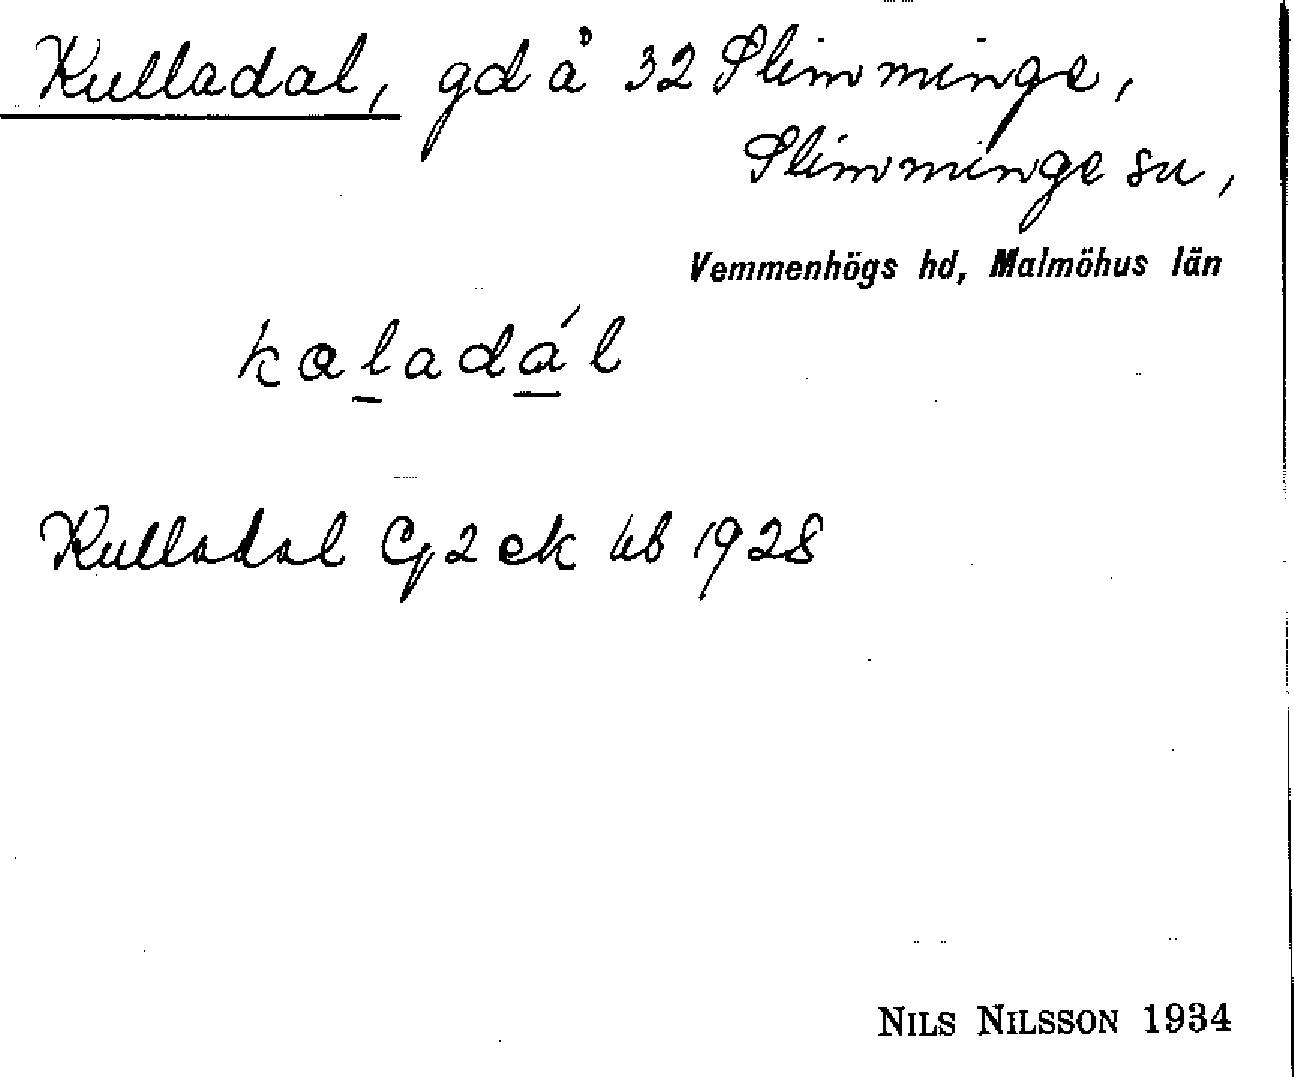 Kulladal, gd å 32 Slimminge,
Slimminge sn,
Vemmenhögs hd, Malmöhus län
kaladál
Kulladal Gj 2 ek kb 1928
NILS NILSSON 1934